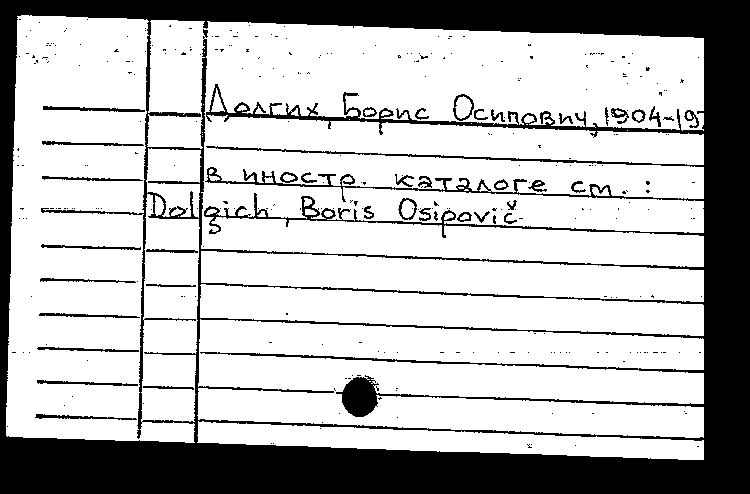 Долгих, Борис Осипович, 1904-197
в иностр. каталоге см. :
Dolgich, Boris Osipovič